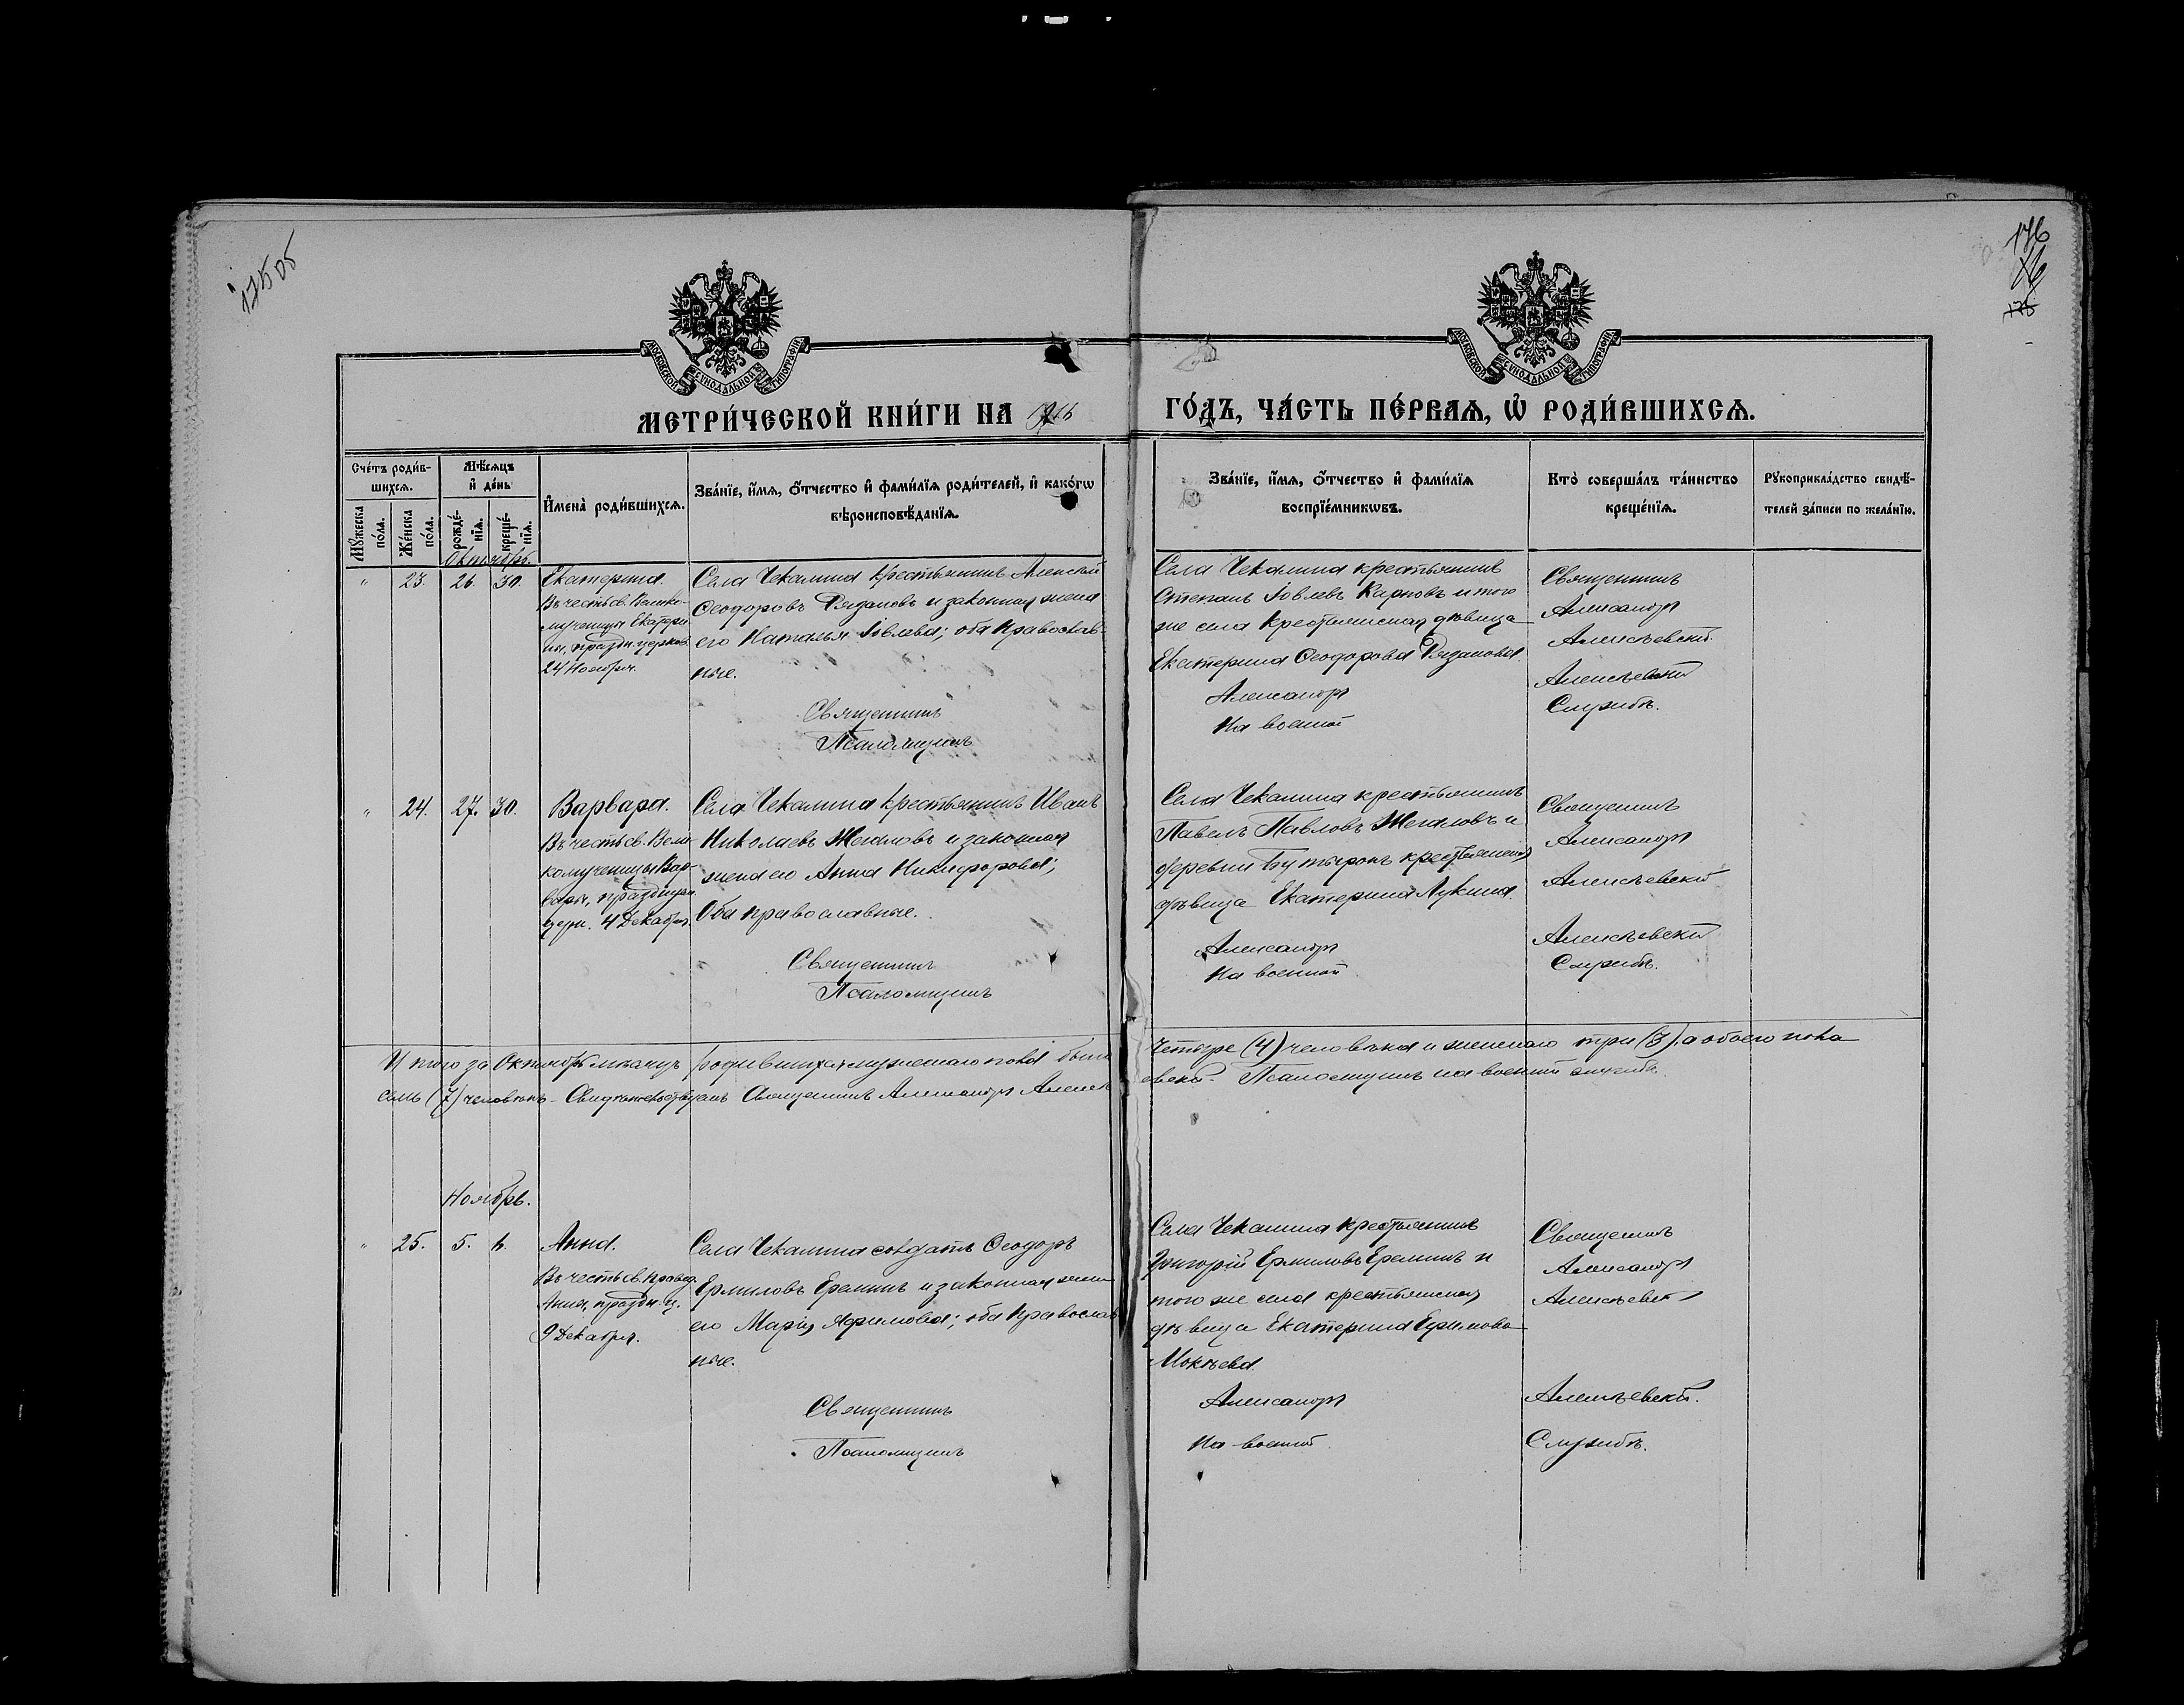 175 об
176
МОСКОВСКОЙ СУНОДАЛЬНОЙ ТИПОГРАФІИ
МОСКОВСКОЙ СУНОДАЛЬНОЙ ТИПОГРАФІИ
МЕТРИ́ЧЕСКОЙ КНИ́ГИ НА 1916
ГО́ДЪ, ЧА́СТЬ ПЕ́РВАѦ, Ѡ҆ РОДИ́ВШИХСѦ.
Сче́тъ роди́в-
шихсѧ.
Мꙋ́жеска по́ла.
Же́нска по́ла.
Мѣ́сѧцъ
и҆ де́нь
рожде́-нїѧ.
креще́-нїѧ.
И҆мена̀ роди́вшихсѧ.
Зва́нїе, и҆́мѧ, ѻ҆́тчество и҆ фами́лїѧ роди́телей, и҆ како́гѡ
вѣроисповѣ́данїѧ.
Зва́нїе, и҆́мѧ, ѻ҆́тчество и҆ фами́лїѧ
воспрїе́мникѡвъ.
Кто̀ соверша́лъ та́инство
креще́нїѧ.
Рꙋкоприкла́дство свидѣ́-
телей за́писи по жела́нїю.
Октябрь.
" 23. 26. 30.
Екатерина.
Въ честь св. Велико-
мученицы Екатери-
ны, праздн. церков.
24 Ноября.
Села Чекалина крестьянинъ Алексѣй
Ѳеодоровъ Рязановъ и законная жена
его Наталья Іовлева; оба православ-
ные.
Священникъ
Псаломщикъ
Села Чекалина крестьянинъ
Степанъ Іовлевъ Карповъ и того
же села крестьянская дѣвица
Екатерина Ѳеодорова Рязанова.
Александръ
На военной
Священникъ
Александръ
Алексѣевскій.
Алексѣевскій
Службѣ.
" 24. 27. 30.
Варвара.
Въ честь св. Вели-
комученицы Вар-
вары, праздную.
церк. 4 Декабря.
Села Чекалина крестьянинъ Иванъ
Николаевъ Жегаловъ и законная
жена его Анна Никифорова;
Оба православные.
Священникъ
Псаломщикъ
Села Чекалина крестьянинъ
Павелъ Павловъ Жегаловъ и
деревни Бутырокъ крестьянская
дѣвица Екатерина Лукина.
Александръ
На военной
Священникъ
Александръ
Алексѣевскій
Алексѣевскій
Службѣ.
Итого за Октябрь мѣсяцъ родившихся мужескаго пола было четыре (4) человѣка и женскаго три (3), а обоего пола
семь (7) человѣкъ. Свидѣтельствуемъ Священникъ Александръ Алексѣевскій. Псаломщикъ на военной службѣ.
Ноябрь.
" 25. 5. 6.
Анна.
Въ честь св. правед.
Анны, праздн. ц.
9 Декабря.
Села Чекалина солдатъ Ѳеодоръ
Ермиловъ Ереминъ и законная жена
его Марія Ефимова; оба православ
ные.
Священникъ
Псаломщикъ
Села Чекалина крестьянинъ
Григорій Ермиловъ Ереминъ и
того же села крестьянская
дѣвица Екатерина Ефимова
Мокѣева.
Александръ
На военной
Священникъ
Александръ
Алексѣевскій
Алексѣевскій.
Службѣ.